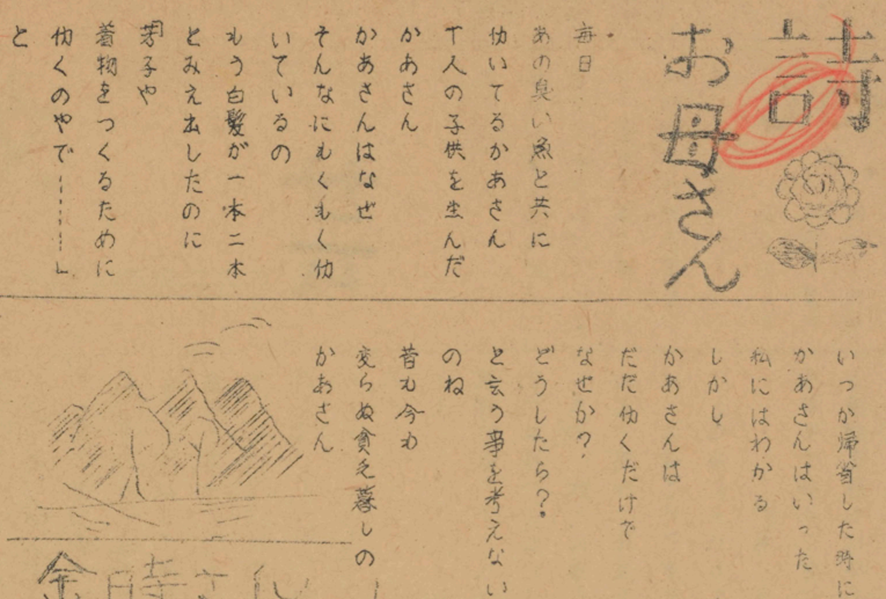 詩
お母さん
毎日
あの臭い魚と共に
仂いてるかあさん
十人の子供を生んだ
かあさん
かあさんはなぜ
そんなにもくもく仂
いているの
もう白髪が一本二本
とみえ出したのに
「芳子や
着物をつくるために
仂くのやで……」
と
いつか帰省した時に
かあさんはいった
私にはわかる
しかし
かあさんは
ただ仂くだけで
なぜか?
どうしたら?
と云う事を考えない
のね
昔も今も
変らぬ貧乏暮しの
かあさん